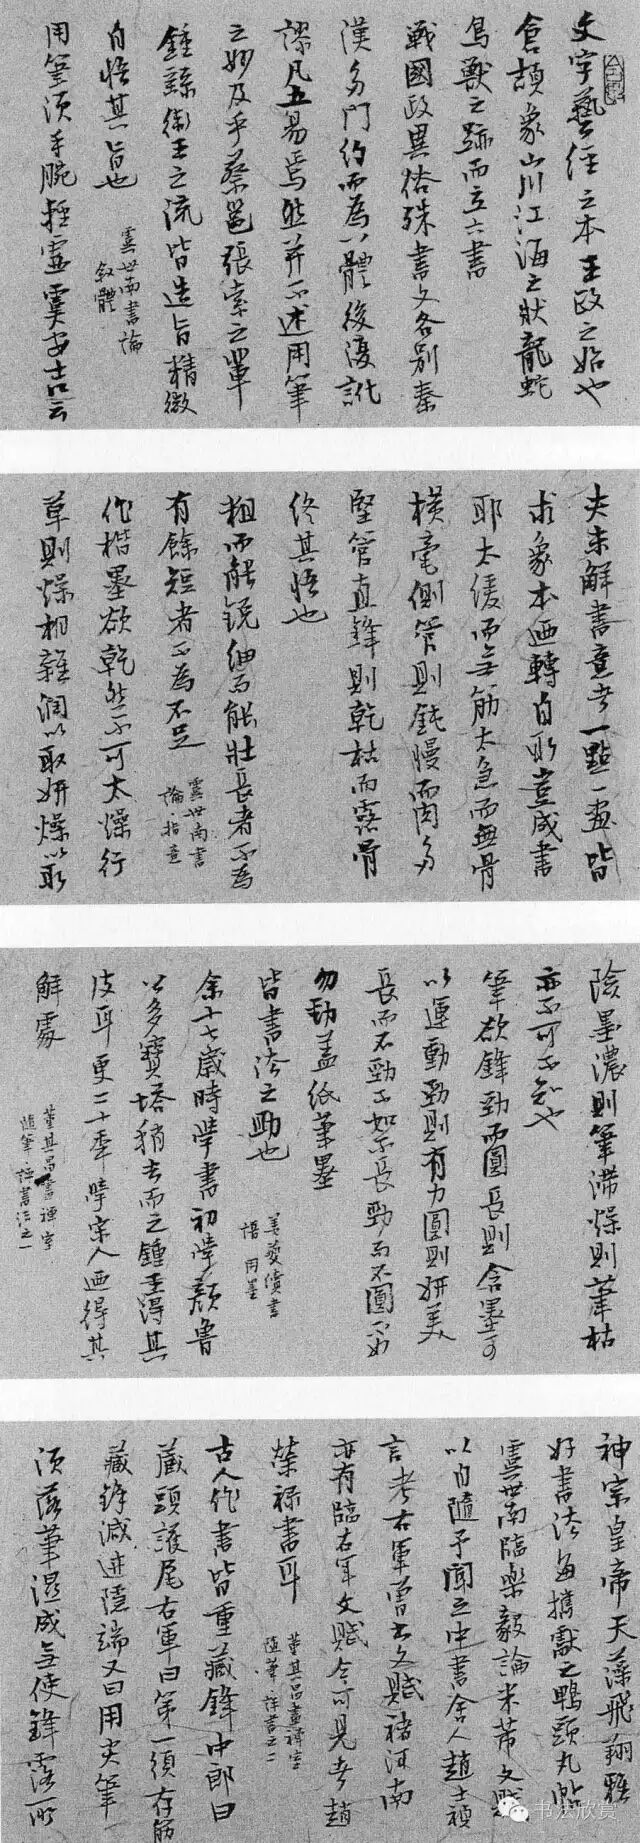 文字藝經之本王政之始也
倉頡象山川江海之狀龍蛇
鳥獸之跡而立六書
戰國政異俗殊書文各別秦
漢多門約而為八體後復訛
謬凡五易焉然並不述用筆
之妙及乎蔡邕張索之輩
鍾繇衛王之流皆造旨精微
自悟其旨也
虞世南書論
敘體
用筆須手腕輕虛虞安吉云
夫未解書意者一點一畫皆
求象本迺轉自取豈成書
耶太緩而無筋太急而無骨
橫毫側管則鈍慢而肉多
竪管直鋒則乾枯而露骨
終其悟也
粗而能銳細而能壯長者不為
有餘短者不為不足
虞世南書
論指意
作楷墨欲乾然不可太燥行
草則燥相雜潤以取妍燥以取
險墨濃則筆滯燥則筆枯
亦不可不知也
筆欲鋒勁而圓長則含墨可
以運動勁則有力圓則妍美
長而不勁不如不長勁而不圓不如
勿勁蓋紙筆墨
皆書法之助也
姜夔續書
用墨
余十七歲時學書初學顏魯
公多寶塔稍去而之鍾王得其
皮耳更二十年學宋人迺得其
解處
董其昌畫禪室
隨筆評書法之一
神宗皇帝天藻飛翔雅
好書法每攜獻之鴨頭丸帖
虞世南臨樂毅論米芾文賦
以自隨予聞之中書舍人趙士禎
言考右軍曾書文賦褚河南
亦有臨右軍文賦今可見者趙
榮祿書耳
董其昌畫禪室
隨筆評書之二
古人作書皆重藏鋒中郎曰
藏頭護尾右軍曰第一須存筋
藏鋒滅跡隱端又曰用尖筆
須落筆混成無使鋒露所
书法欣赏